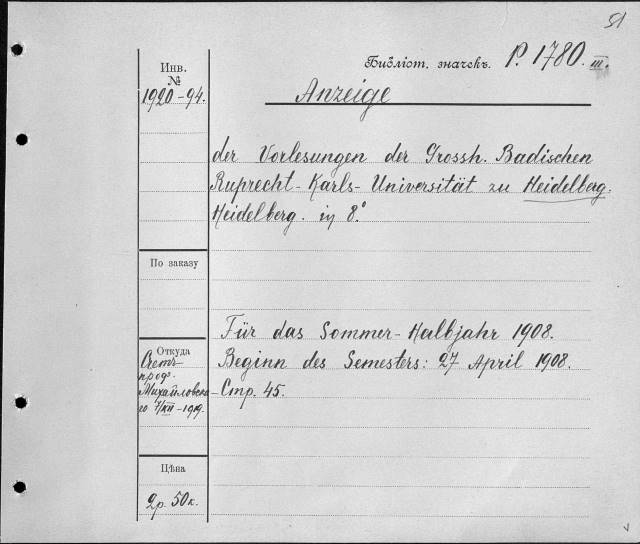 51
Библіот. значекъ. P. 1780. III.
Инв.
№
1920-94.
Anzeige
der Vorlesungen der Grossh. Badischen
Ruprecht-Karls-Universität zu Heidelberg.
Heidelberg. in 8°
По заказу
Für das Sommer-Halbjahr 1908.
Beginn des Semesters: 27 April 1908.
Стр. 45.
Откуда
Михайловска-
го 7/XII-1919.
Цѣна
2р. 50к.